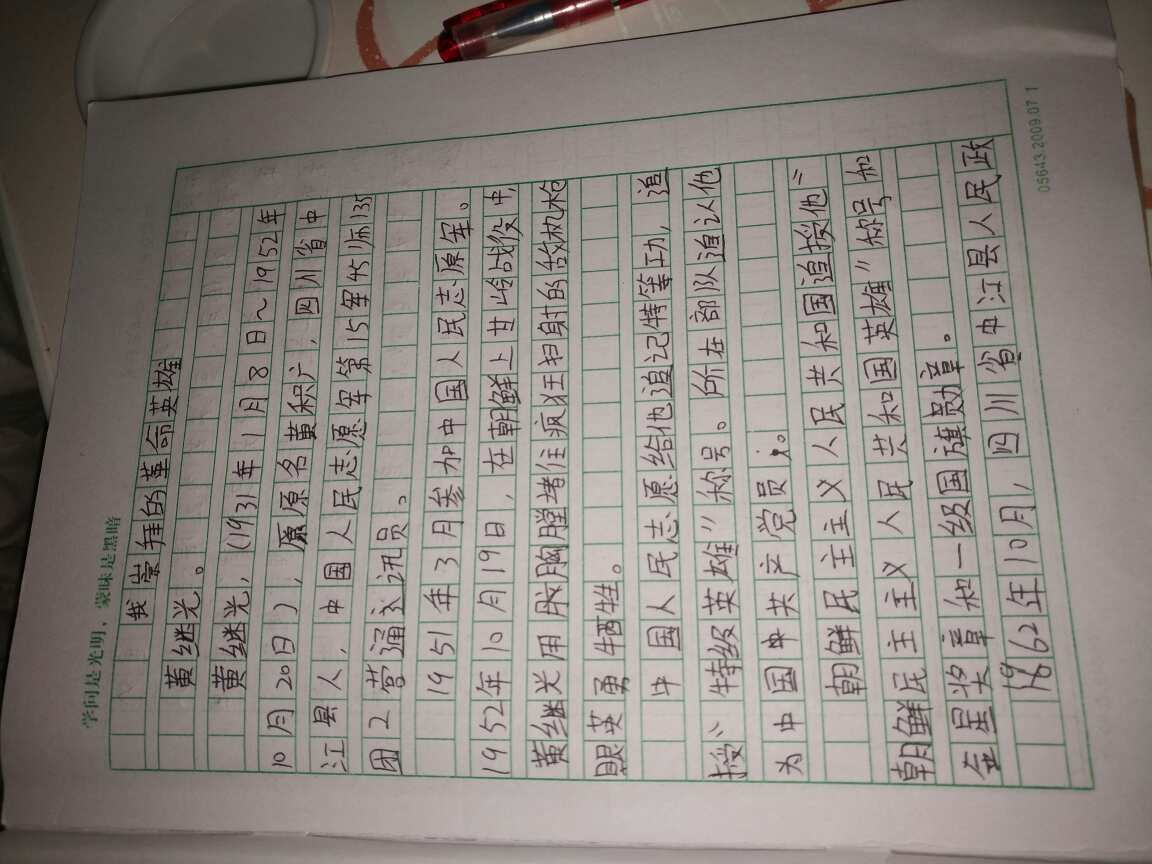 学问是光明，蒙昧是黑暗
我崇拜的革命英雄
黄继光。
黄继光，(1931年1月8日～1952年
10月20日)，原名黄积广，四川省中
江县人，中国人民志愿军第15军45师135
团2营通讯员。
1951年3月参加中国人民志原军。
1952年10月19日，在朝鲜上甘岭战役中，
黄继光用胸膛堵住疯狂扫射的敌机枪
眼英勇牺牲。
中国人民志愿给他追记特等功，追
授"特级英雄"称号。所在部队追认他
为中国共产党员。
朝鲜民主主义人民共和国追授他"
朝鲜民主主义人民共和国英雄"称号和
金星奖章和一级国旗勋章。
1962年10月，四川省中江县人民政
05643.2009.07 1